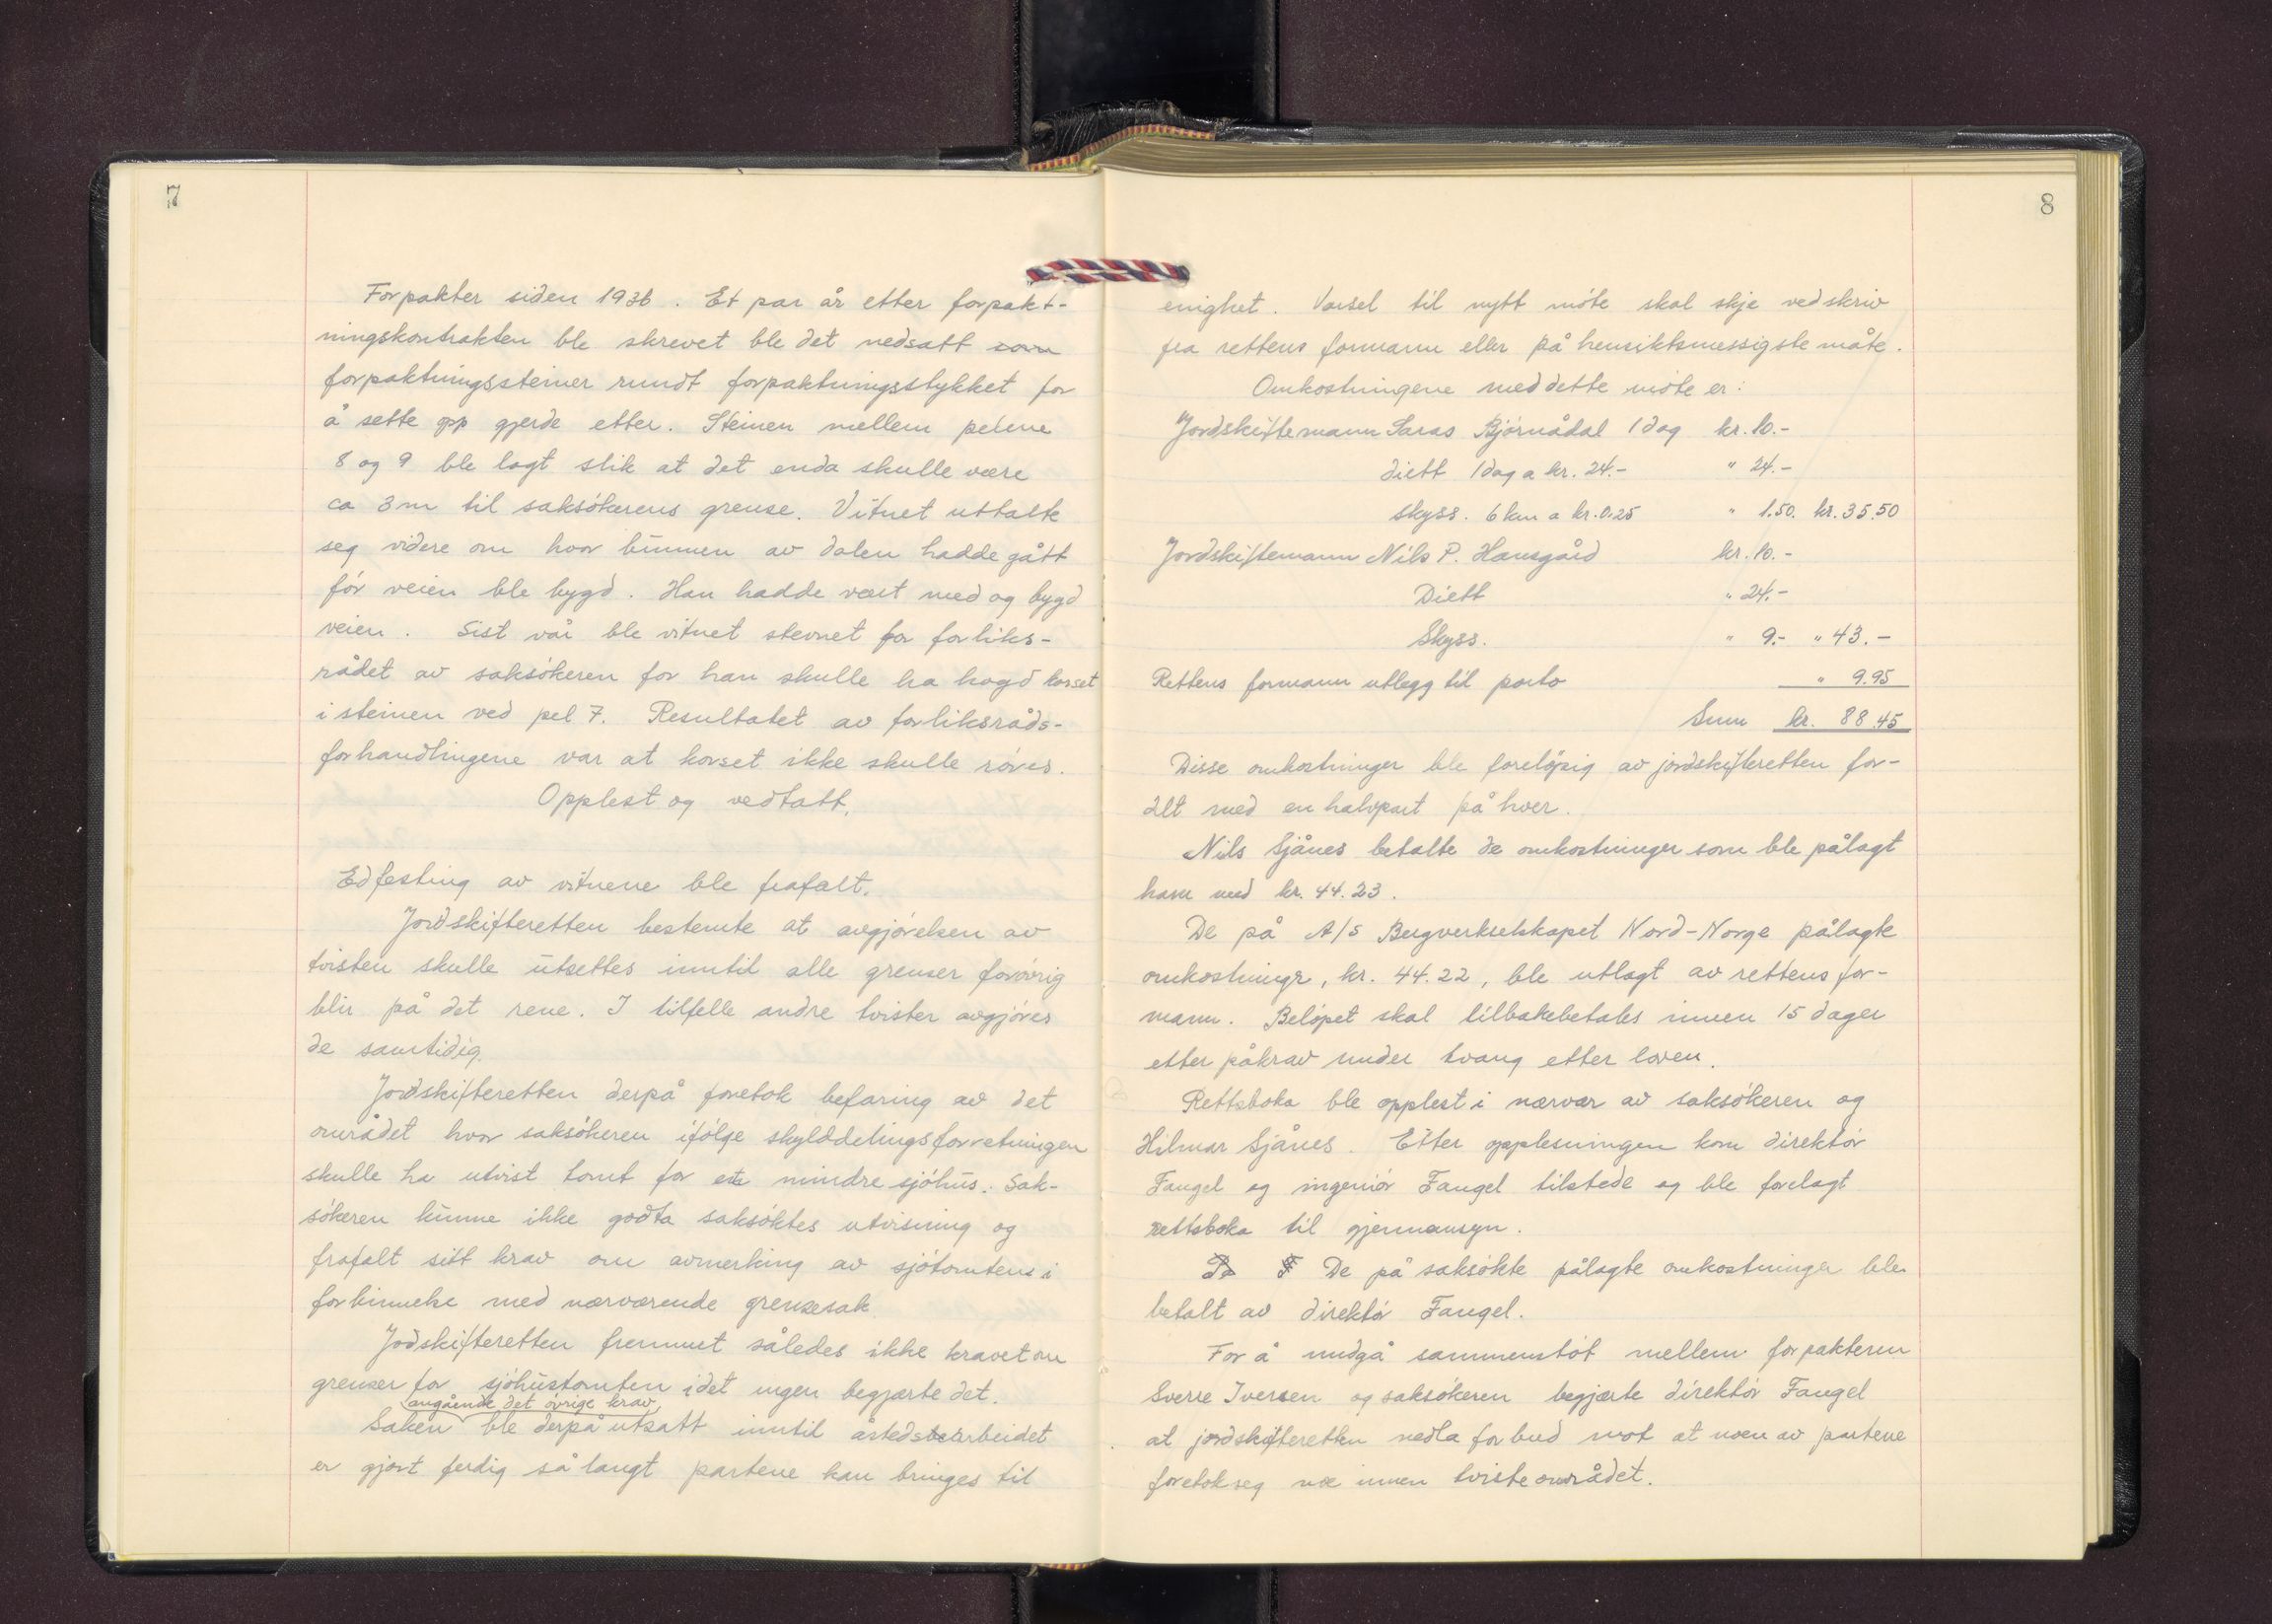 7
Forpakter siden 1936. Et par år etter forpakt-
ningskontrakten ble skrevet ble det nedsatt som
forpaktningssteiner rundt forpaktningsstykket for
å sette opp gjerde etter. Steinen mellem pelene
8 og 9 ble lagt slik at det enda skulle være
ca 3 m til saksökerens grense. Vitnet uttalte
seg videre om hvor bunnen av dalen hadde gått
för veien ble bygd. Han hadde vært med og bygd
veien. Sist vår ble vitnet stevnet for forliks-
rådet av saksökeren for han skulle ha hogd korset
i steinen ved pel 7. Resultatet av forliksråds-
forhandlingene var at korset ikke skulle röres.
Opplest og vedtatt.
Edfesting av vitnene ble frafalt.
Jordskifteretten bestemte at avgjörelsen av
tvisten skulle utsettes inntil alle grenser forövrig
blir på det rene. I tilfelle andre tvister avgjöres
de samtidig.
Jordskifteretten derpå foretok befaring av det
området hvor saksökeren ifölge skylddelingsforretningen
skulle ha utvist tomt for et mindre sjöhus. Sak-
sökeren kunne ikke godta saksöktes utvisning og
frafalt sitt krav om avmerking av sjötomtene i
forbinnelse med nærværende grensesak
Jodskifteretten fremmet således ikke kravet om
grenser for sjöhustomten idet ingen begjærte det.
angående det övrige krav
Saken ble derpå utsatt inntil åstedsarbeidet
er gjort ferdig så langt partene kan bringes til
8
enighet. Varsel til nytt möte skal skje ved skriv
fra rettens formann eller på hensiktsmessigste måte.
Omkostningene med dette möte er:
Jordskiftemann Saras Björnådal 1 dag kr. 10.-
diett 1 dag a kr. 24.- " 24.-
skyss. 6 km a kr. 0.25 " 1.50. kr. 35.50
Jordskiftemann Nils P. Hansgård kr. 10.-
Diett " 24.-
Skyss. " 9.- " 43.-
Rettens formann utlegg til porto " 9.95
Sum kr. 88.45
Disse omkostninger ble forelöpig av jordskifteretten for-
delt med en halvpart på hver.
Nils Sjånes betalte de omkostninger som ble pålagt
ham med kr. 44.23.
De på A/S Bergverkselskapet Nord-Norge pålagte
omkostningr, kr. 44.22, ble utlagt av rettens for-
mann. Belöpet skal tilbakebetales innen 15 dager
etter påkrav under tvang etter loven.
Rettsboka ble opplest i nærvær av saksökeren og
Hilmar Sjånes. Etter opplesningen kom direktör
Fangel og ingeniör Fangel tilstede og ble forelagt
rettsboka til gjennomsyn.
De F De på saksökte pålagte omkostninger ble
betalt av direktör Fangel.
For å undgå sammenstöt mellem forpakteren
Sverre Iversen og saksökeren begjærte direktör Fangel
at jordskifteretten nedla forbud mot at noen av partene
foretok seg noe innen tvisteområdet.